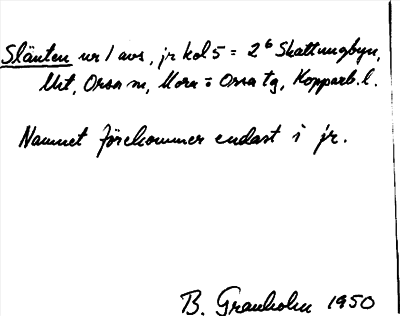 Slänten nr 1 avs, jr kol 5 = 2⁶ Skattungbyn,
Urt, Orsa sn, Mora o Orsa tg, Kopparb. l.
Namnet förekommer endast i jr.
B. Granholm 1950